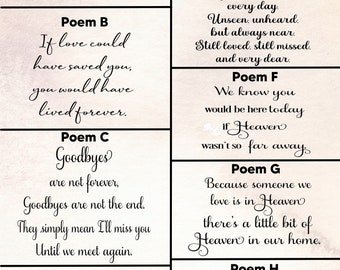 Poem B
If love could
have saved you,
you would have
lived forever.
Poem C
Goodbyes
are not forever,
Goodbyes are not the end.
They simply mean I'll miss you
Until we meet again.
every day.
Unseen, unheard,
but always near.
Still loved, still missed,
and very dear.
Poem F
We know you
would be here today
if Heaven
wasn't so far away.
Poem G
Because someone we
love is in Heaven
there's a little bit of
Heaven in our home.
Poem H